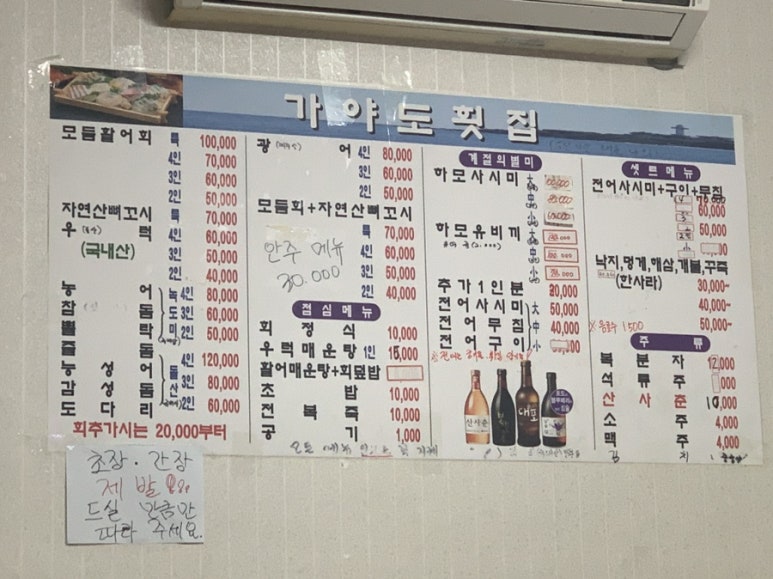 가야도횟집
모듬활어회 특 100,000
4인 70,000
3인 60,000
2인 50,000
자연산뼈꼬시 특 70,000
우럭 4인 60,000
(국내산) 3인 50,000
2인 40,000
농어 4인 80,000
참돔 3인 60,000
뽈락 2인 50,000
줄돔
능성어 4인 120,000
감성돔 3인 80,000
도다리 2인 60,000
회추가시는 20,000부터
광어 4인 80,000
3인 60,000
2인 50,000
모듬회+자연산뼈꼬시
특 70,000
안주 메뉴 4인 60,000
30.000 3인 50,000
2인 40,000
점심메뉴
회정식 10,000
우럭매운탕 1인 15,000
활어매운탕+회덮밥
초밥 10,000
전복죽 10,000
공기 1,000
계절의별미
하모사시미 大
中
小
하모유비끼 大
中
小
추가1인분 20,000
전어사시미 大 50,000
전어무침 中 40,000
전어구이 小
산사춘
대포
셋트메뉴
전어사시미+구이+무침
70,000
60,000
50,000
낙지,멍게,해삼,개불,꾸죽
(한사라) 30,000~
40,000~
50,000~
※음료수 1500
주류
복분자 12,000
석류주
산사춘 10,000
소주 4,000
맥주 4,000
초장·간장
제발
드실 만큼만
따라 주세요.